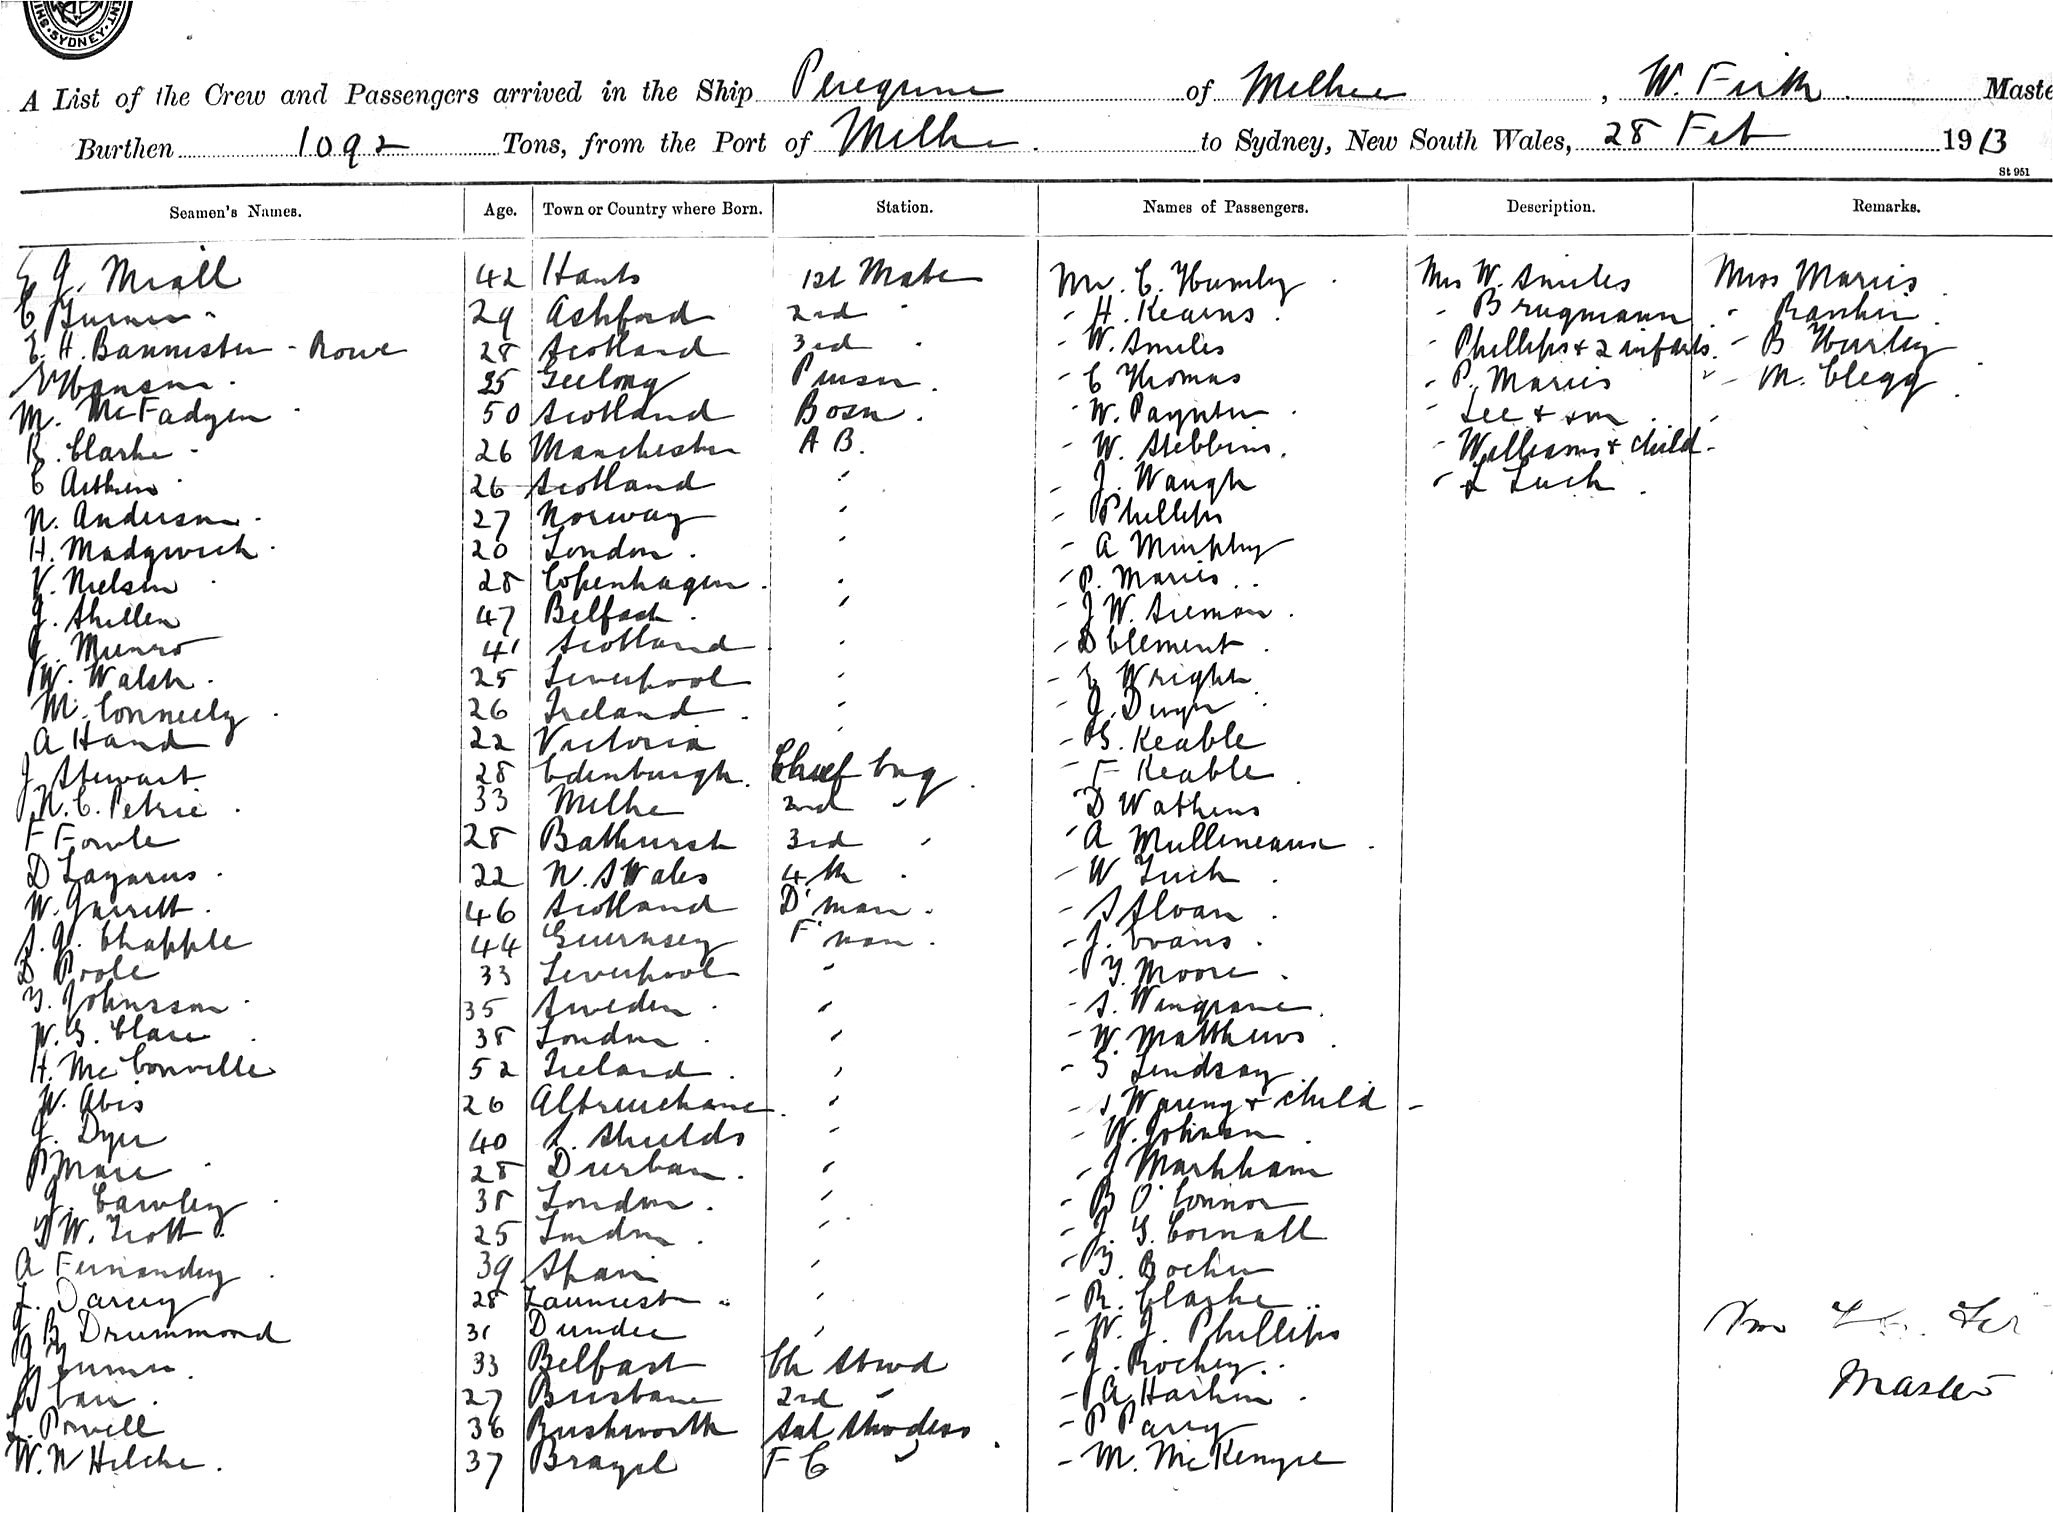 SYDNEY
A List of the Crew and Passengers arrived in the Ship Peregrine of Melbne, W. Firth Maste
Burthen 1092 Tons, from the Port of Melbne to Sydney, New South Wales, 28 Feb 1913
St 951
Seamen's Names. Age. Town or Country where Born. Station. Names of Passengers. Description. Remarks.
E G. Miall 42 Hants 1st Mate Mr. C. Hurley Mrs W. Smiles Miss Maries
C 29 Ashford 2nd " - H. Kearns - Brugmann - Rankin
E. H. Bannister - Rowe 28 Scotland 3rd " - W. Smiles - Phillips & 2 infants - B Hurley
Hansen 25 Geelong Purser - C Thomas - P. Maries - M. Clegg
M. McFadyen 50 Scotland Bosn - W. Paynter - Lee & son
R. Clarke 26 Manchester A B. - W. Stebbins - Williams & child
C Aitken 26 Scotland " - J. Waugh - L Tuck
N. Anderson 27 Norway " - Phillips
H. Madgwick 20 London " - A Murphy
V. Nielsen 28 Copenhagen " - P. Maries
J. Skillen 47 Belfast " - J W. Sieman
J. Munro 41 Scotland " - D Clement
W. Walsh 25 Liverpool " - E Wright
M. Conneely 26 Ireland " - J. Dwyer
A Hand 22 Victoria " - G. Keable
J. Stewart 28 Edinburgh Chief Eng - F Keable
N. C. Petrie 33 Melbne 2nd " D Watkins
F Fowle 28 Bathurst 3rd " - A Mullineaux
D Lazarus 22 N. S Wales 4th " - W Tuck
W. Garrett 46 Scotland D'man - S Sloan
S. G. Chapple 44 Guernsey F'man - J. Evans
D Poole 33 Liverpool " - Y. Moore
Y. Johnsson 35 Sweden " - S. Wingrove
W. G. Clare 38 London " - W. Matthews
H. McConville 52 Ireland " - G Lindsay
W. Abis 26 Altrinchame " - S Waring & child
J. Dyer 40 S. Shields " - W. Johnson
P Mare 28 Durban " - J Markham
J. Cawley 38 London " - B O'Connor
W. Trott 25 London " - J. G. Cornall
A Fernandez 39 Spain " - Bocher
L. Darcy 28 Launcestn " - R. Clarke
J B Drummond 31 Dundee " - W. J. Phillips
J Turner 33 Belfast Ch Stwd - J. Rochey
Carr 27 Brisbane 2nd " - A Harkin
L. Powell 36 Rushworth Sal Stwdess - P Parry
W. N Hilcke 37 Brazil F C " - M. McKenzie
Master